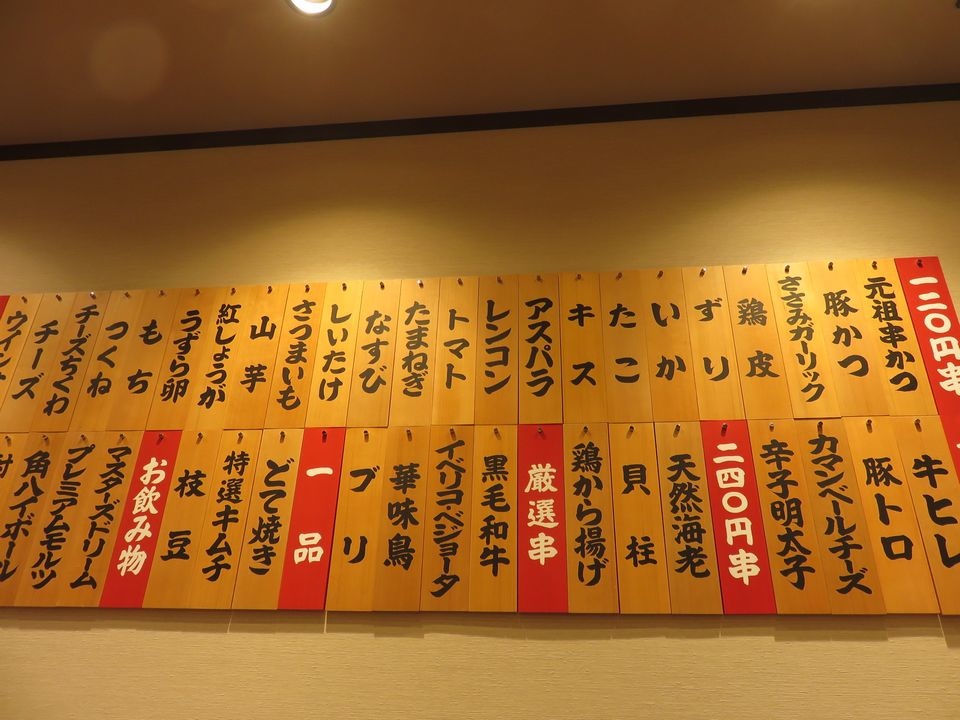 一二〇円串
元祖串かつ
豚かつ
ささみガーリック
鶏皮
ずり
いか
たこ
キス
アスパラ
レンコン
トマト
たまねぎ
なすび
しいたけ
さつまいも
山芋
紅しょうが
うずら卵
もち
つくね
チーズちくわ
チーズ
牛ヒレ
豚トロ
カマンベールチーズ
辛子明太子
二四〇円串
天然海老
貝柱
鶏から揚げ
厳選串
黒毛和牛
イベリコベジョータ
華味鳥
ブリ
一品
どて焼き
特選キムチ
枝豆
お飲み物
マスターズドリーム
プレミアムモルツ
角ハイボール